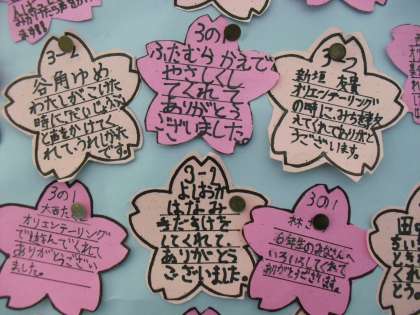 3-2
谷角ゆめ
わたしがこけた
時に「だいじょうぶ」
と声をかけてく
れて、うれしかった
です。
3の1
ふたむら かえで
やさしくし
てくれて
ありがとう
ございました。
3-2
新垣 友貴
オリエンテーリング
の時に、みちを教
えてくれてありがとう
ございます。
3の1
オリエンテーリング
であそんでくれて
ありがとうござい
ました。
3-2
よしおか
はなみ
手だすけを
してくれて、
ありがとう
ございました。
3の1
林
6年生のみなさんへ
いろいろしてくれて
ありがとうございます。